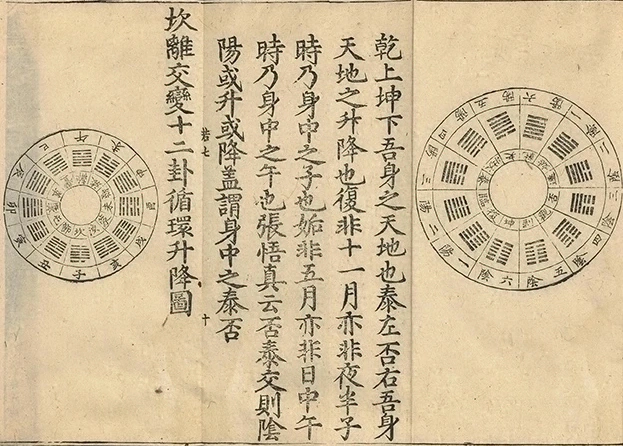 六陽
一陰
二陰
三陰
四陰
五陰
六陰
一陽
二陽
三陽
四陽
五陽
觀
剝
坤
復
臨
泰
乾上坤下吾身之天地也泰左否右吾身
天地之升降也復非十一月亦非夜半子
時乃身中之子也姤非五月亦非日中午
時乃身中之午也張悟真云否泰交則陰
陽或升或降蓋謂身中之泰否
若七
十
坎離交變十二卦循環升降圖
午
未
申
酉
戌
亥
子
丑
寅
卯
辰
巳